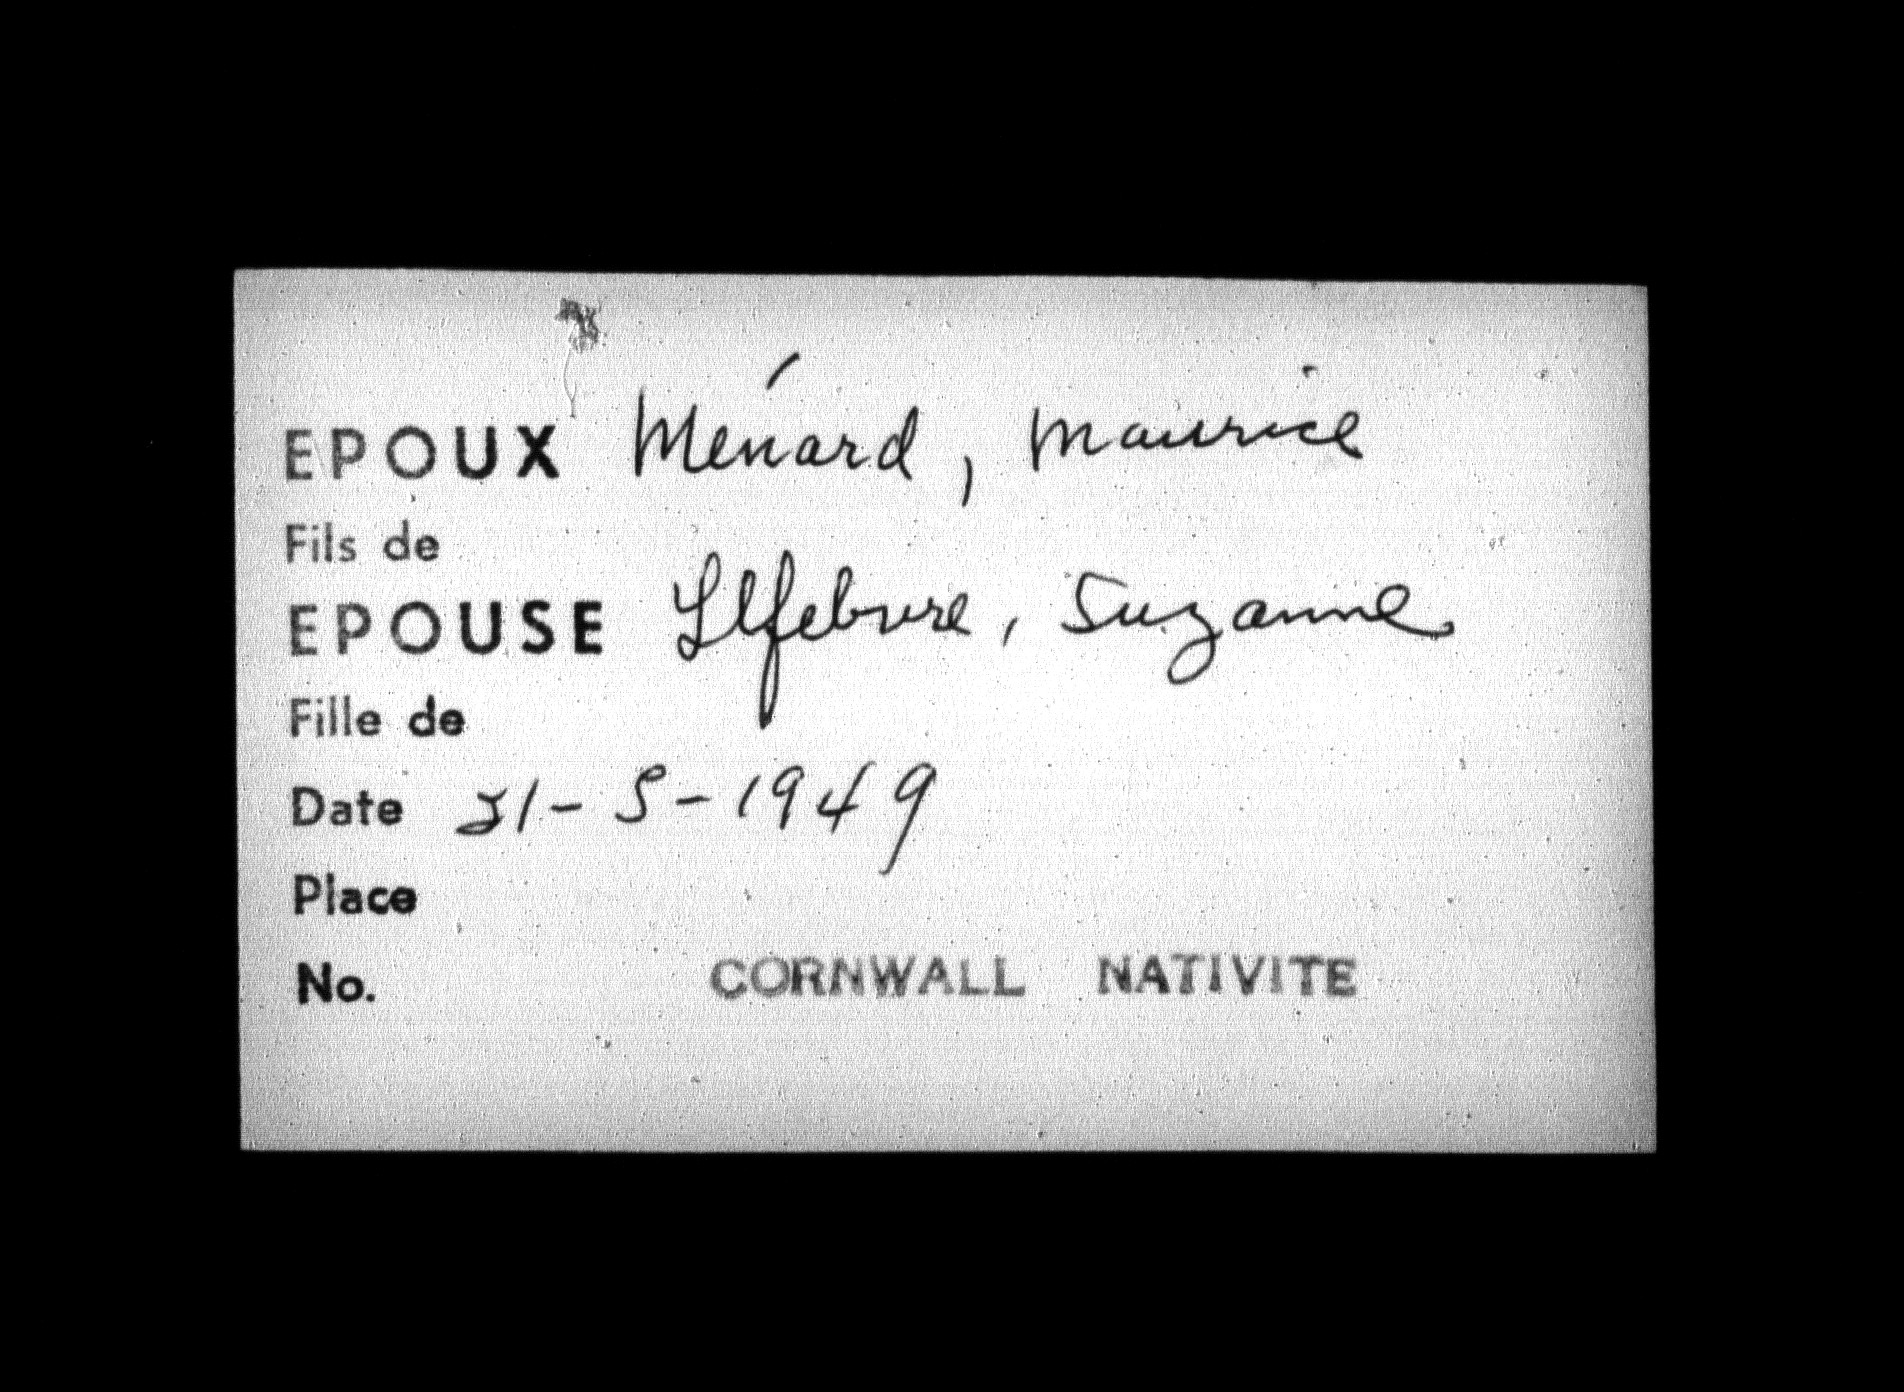 EPOUX Ménard, Maurice
Fils de
EPOUSE Lefebvre, Suzanne
Fille de
Date 21-5-1949
Place
No. CORNWALL NATIVITE